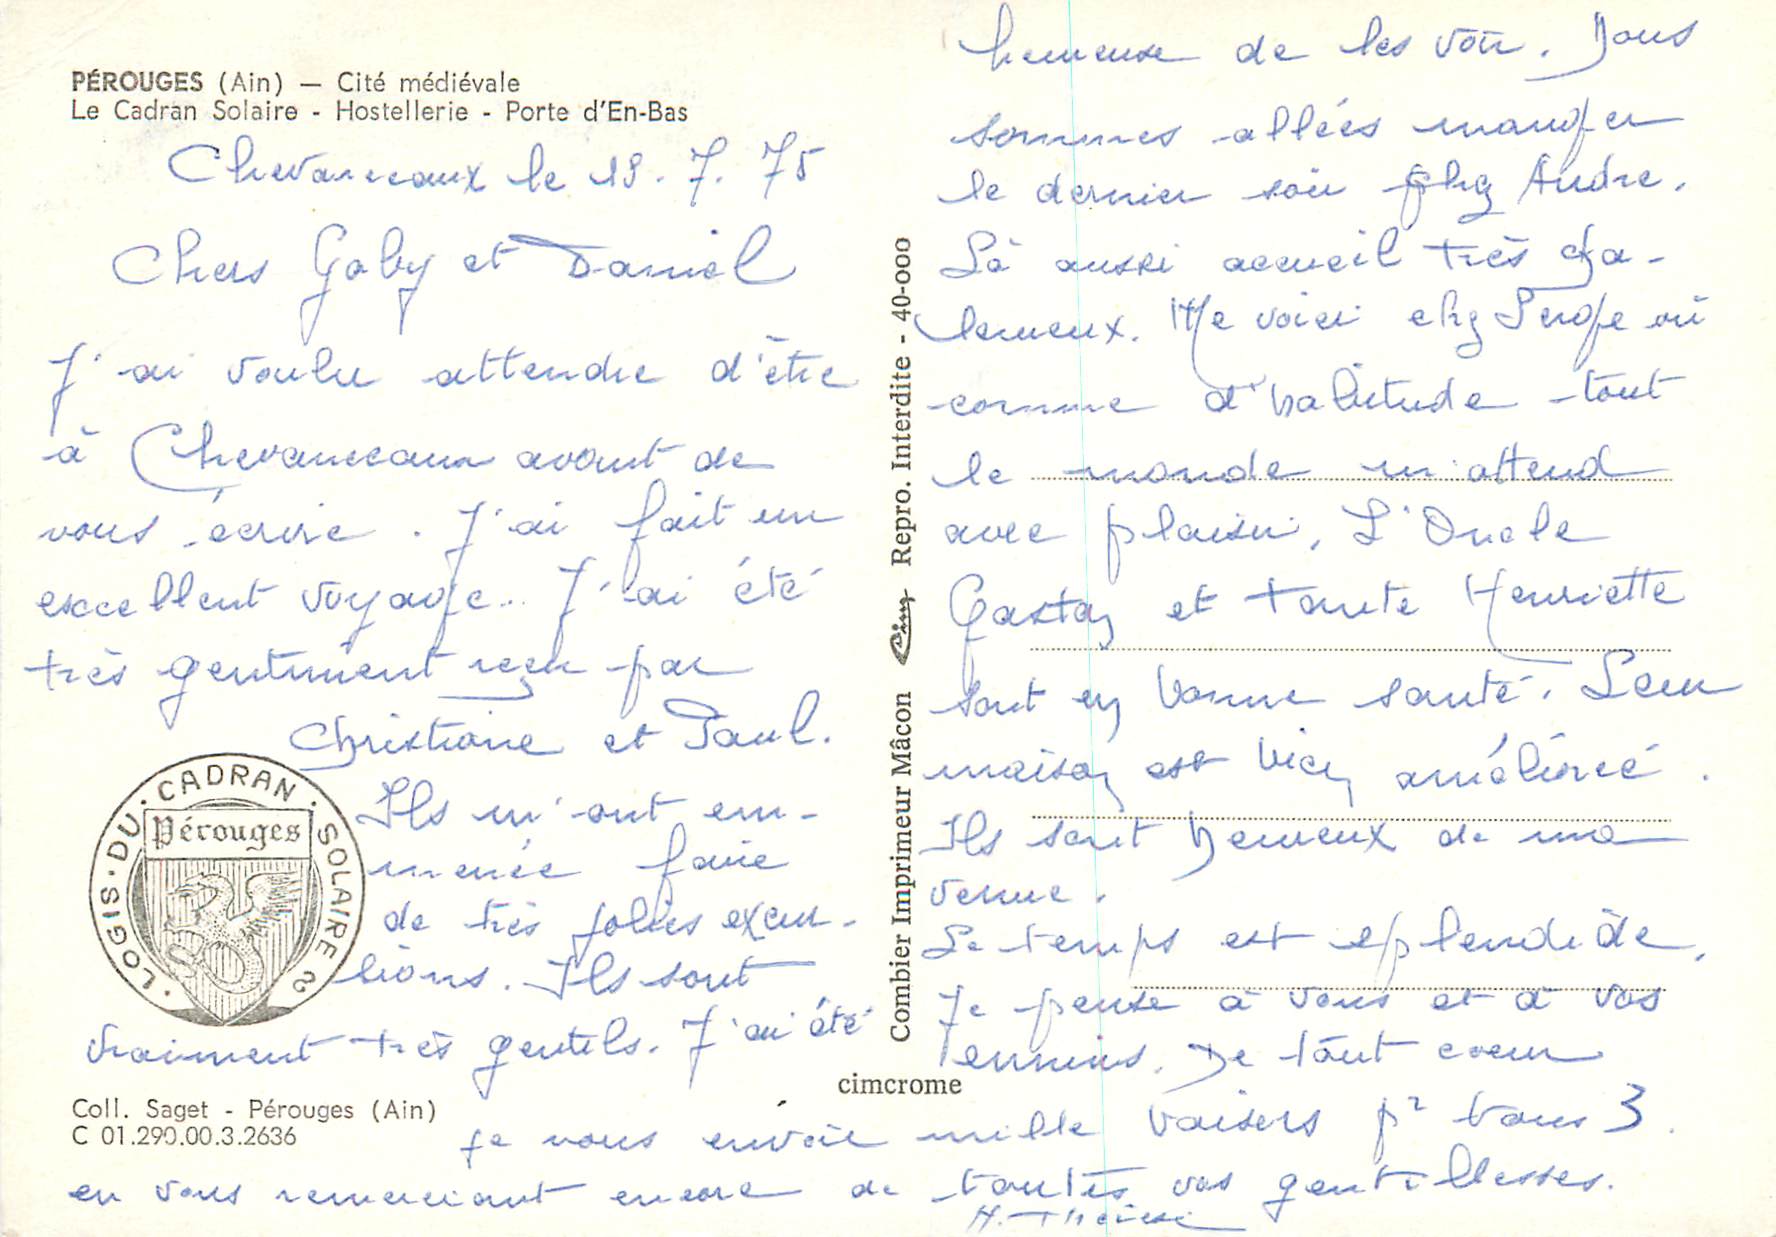 PÉROUGES (Ain) — Cité médiévale
Le Cadran Solaire - Hostellerie - Porte d'En-Bas
Chevanceaux le 19.7.75
Chers Gaby et Daniel
J'ai voulu attendre d'être
à Chevanceaux avant de
vous écrire. J'ai fait un
excellent voyage.. J'ai été
très gentiment reçu par
Christiane et Paul.
Ils m'ont em-
menée faire
de très jolies excur-
tions. Ils sont
vraiment très gentils. J'ai été
LOGIS · DU · CADRAN · SOLAIRE
Pérouges
Coll. Saget - Pérouges (Ain)
C 01.290.00.3.2636
Combier Imprimeur Mâcon Cim Repro. Interdite - 40-000
cimcrome
heureuse de les voir. Nous
sommes allées manger
le dernier soir chez André.
Là aussi accueil très cha-
leureux. Me voici chez Serge où
comme d'habitude tout
le monde m'attend
avec plaisir. L'Oncle
Gaston et tante Henriette
sont en bonne santé. Leur
maison est bien améliorée.
Ils sont heureux de ma
venue.
Le temps est splendide.
Je pense à vous et à vos
ennuis. De tout coeur
je vous envoie mille baisers pr vous 3.
en vous remerciant encore de toutes vos gentillesses.
M. Thérèse